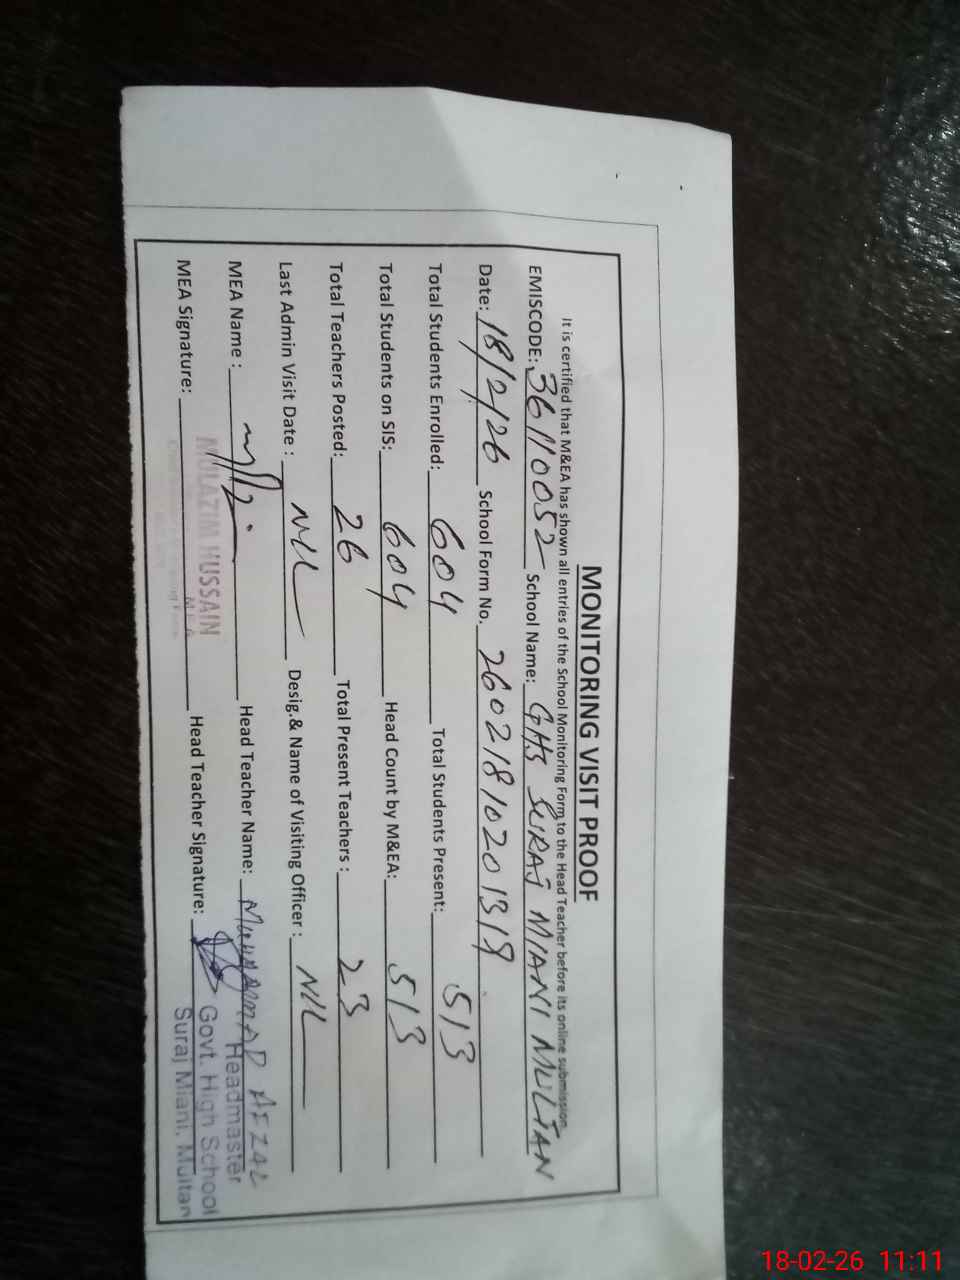 MONITORING VISIT PROOF
It is certified that M&EA has shown all entries of the School Monitoring Form to the Head Teacher before its online submission.
EMISCODE: 36110052 School Name: GHS SURAJ MIANI MULTAN
Date: 18/2/26 School Form No. 26021810201319
Total Students Enrolled: 604 Total Students Present: 513
Total Students on SIS: 604 Head Count by M&EA: 513
Total Teachers Posted: 26 Total Present Teachers : 23
Last Admin Visit Date : NIL Desig.& Name of Visiting Officer : NIL
MEA Name : Head Teacher Name: MUHAMMAD AFZAL
MEA Signature: MULAZIM HUSSAIN Head Teacher Signature:
M.E.A
Headmaster
Govt. High School
Suraj Miani, Multan
18-02-26 11:11